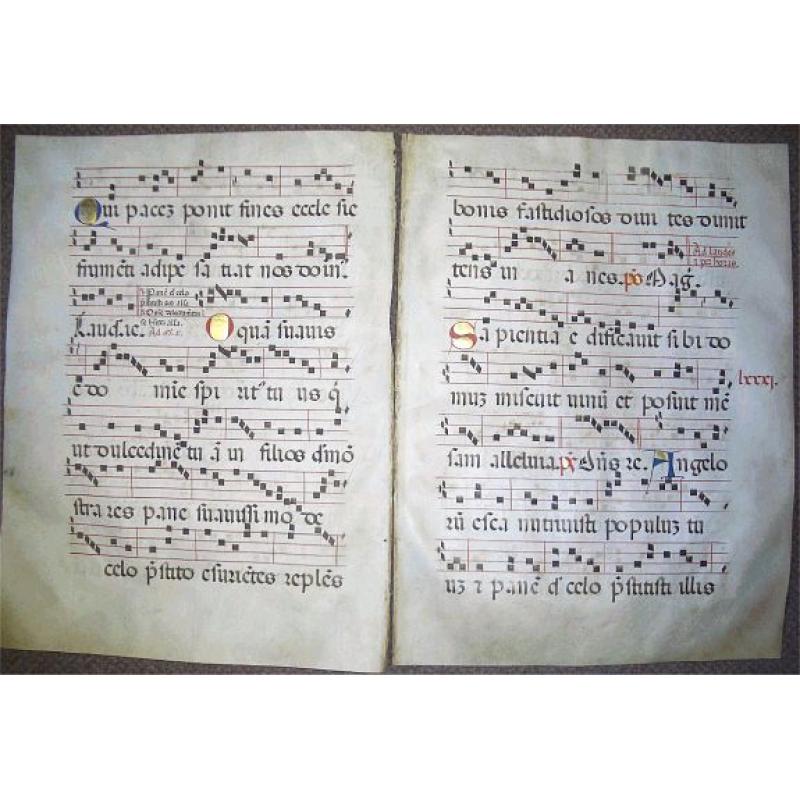 Qui pacez ponit fines eccle sie
frumēti adipe sa tiat nos domī.
Laud. ie. O quā suavis
ē do mīe spi rit⁹ tu us q̄
ut dulcedinē tu ā in filios dmō
stra res pane suavissi mo de
celo p̄stito esuriētes reples
bonis fastidiosos divi tes dimit
tens in a nes. ps Mag̃.
Ad laudes
Sa pientia e dificavit si bi do
lxxxj.
muz miscuit vinū et posuit mē
sam alleluia. ps Dn̄s re. Angelo
rū esca nutriuisti populuz tu
uz ⁊ panē d̄ celo p̄stitisti illis